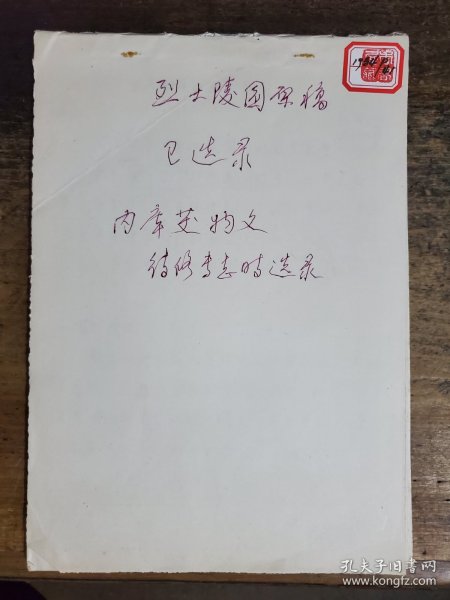 烈士陵园原稿
已选录
内库英物文
待修专志时选录
孔夫子旧书网
www.kongfz.com